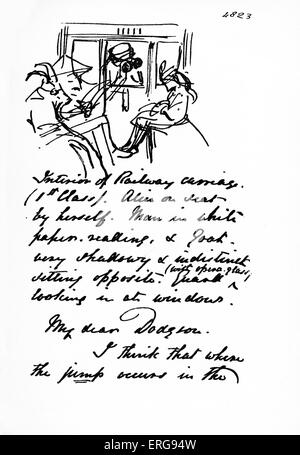 4823
Interior of Railway carriage.
(1st Class). Alice on seat
by herself. Man in white
paper, reading, & Goat
very shadowy & indistinct
sitting opposite. Guard (with opera-glass)
looking in at window.
My dear Dodgson.
I think that when
the jump occurs in the
alamy
Image ID: ERG94W
www.alamy.com